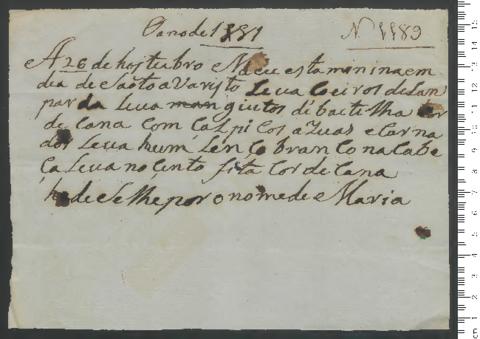 N 1189
A 26 de hoytubro Naceu esta mininaem
dia de Santo a Varisto Leva Coeiros de Lan
par da Leva mangiutos di baetilha Cor
de Cana com Salpicos azuas e tarna
dos Leva hum Lenco branco na Cabe
ca Leva no Cinto fita Cor de Cana
hade se lhe por o nome de Maria